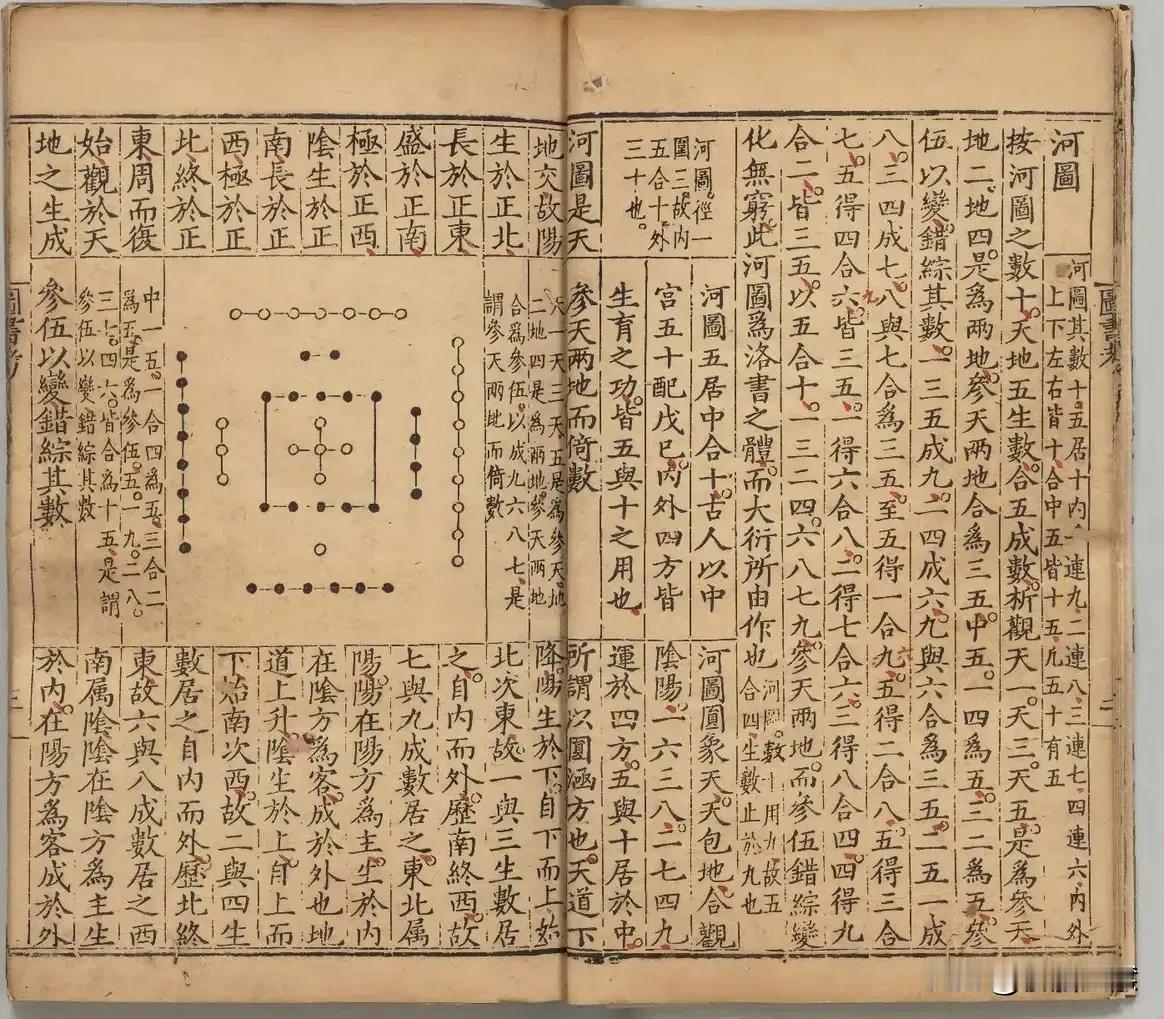 圖書考
二
河圖
河圖其數十五居十内一連九二連八三連七四連六内外
上下左右皆十合中五皆十五凡五十有五
按河圖之數十天地五生數合五成數析觀天一天三天五是為參天
地二地四是為兩地參天兩地合為三五中五一四為五二三為五參
伍以變錯綜其數一三五成九二四成六九與六合為三五二五一成
八三四成七八與七合為三五至五得一合九五得二合八五得三合
七五得四合六皆三五一得六合八二得七合六三得八合四四得九
合二皆三五以五合十一三二四六八七九參天兩地而參伍錯綜變
化無窮此河圖為洛書之體而大衍所由作也
河圖數十用九故五
合四生數止於九也
河圖徑一
圍三故内
五合十外
三十也
河圖五居中合十古人以中
宮五十配戊己内外四方皆
生育之功皆五與十之用也
河圖是天
地交故陽
生於正北
長於正東
盛於正南
極於正西
陰生於正
南長於正
西極於正
北終於正
東周而復
始觀於天
地之生成
參天兩地而倚數
天一天三天五是為參天地
二地四是為兩地參天兩地
合為參伍以成九六八七是
謂參天兩地而倚數
中一五一合四為五三合二
為五是為參伍五一九二八
三七四六皆合為十五是謂
參伍以變錯綜其數
參伍以變錯綜其數
河圖圓象天天包地合觀
陰陽一六三八二七四九
運於四方五與十居於中
所謂以圓涵方也天道下
降陽生於下自下而上始
北次東故一與三生數居
之自内而外歷南終西故
七與九成數居之東北属
陽陽在陽方為主生於内
在陰方為客成於外也地
道上升陰生於上自上而
下始南次西故二與四生
數居之自内而外歷北終
東故六與八成數居之西
南属陰陰在陰方為主生
於内在陽方為客成於外
圖書考
三